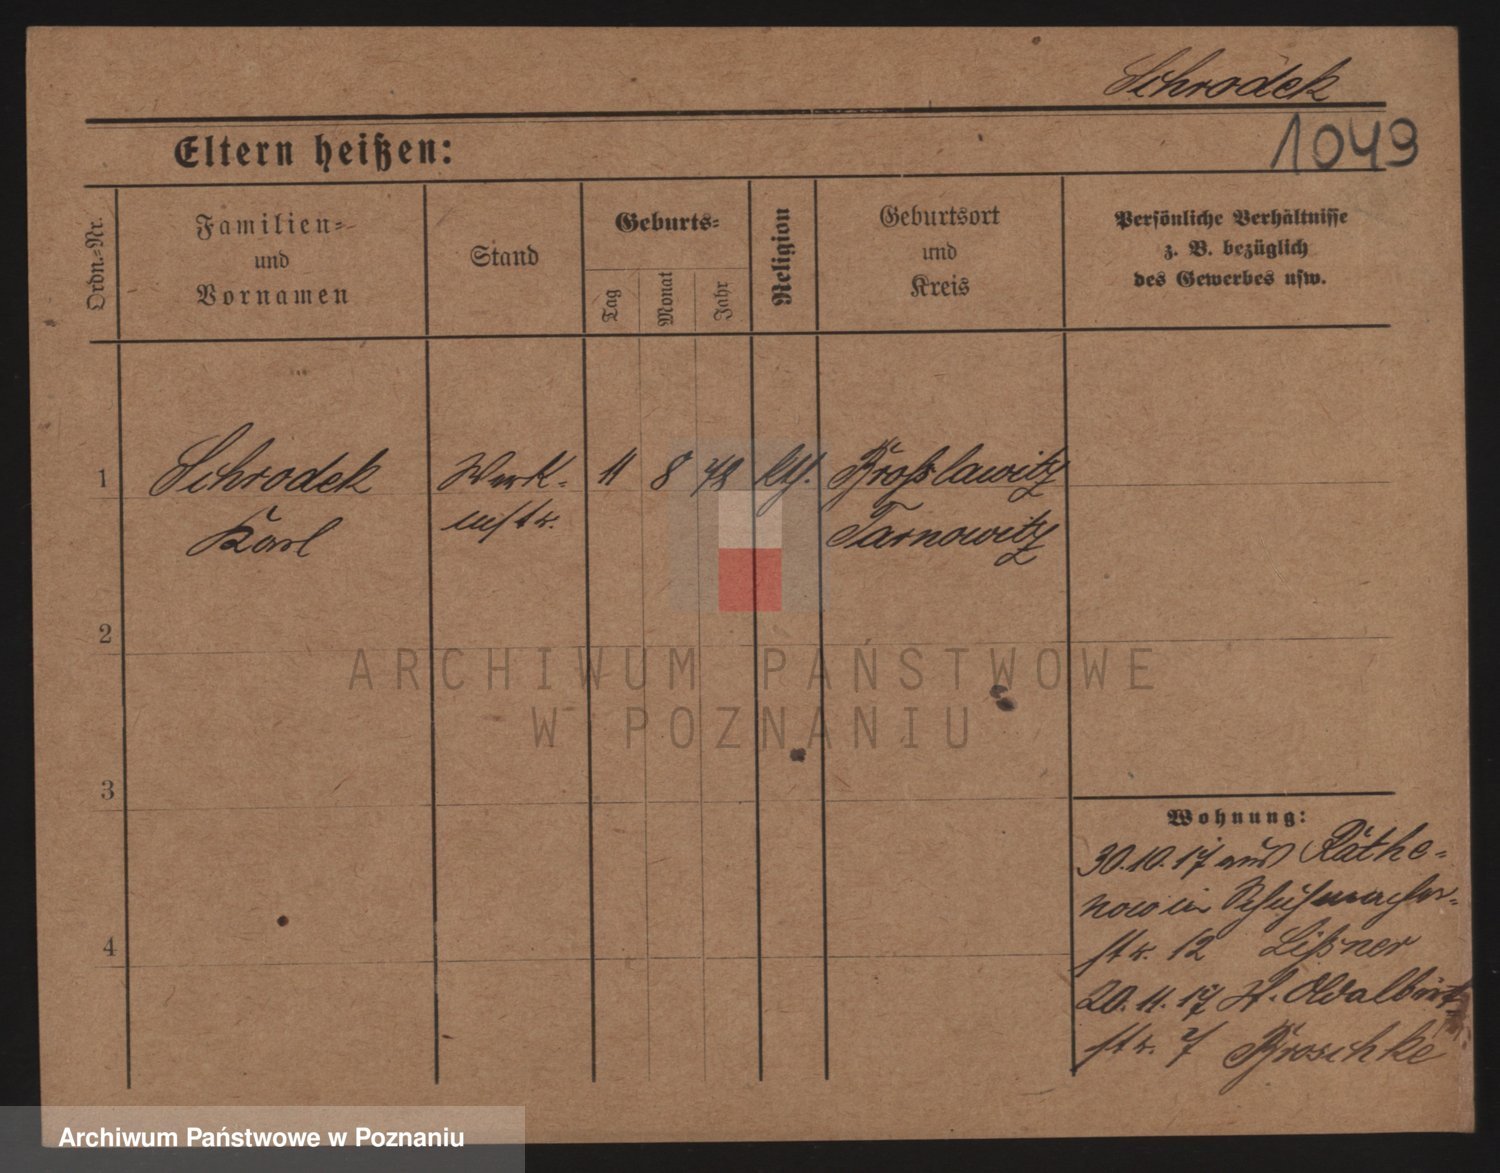 Schrodek
1049
Eltern heißen:
Ordn.-Nr.
Familien-
und
Vornamen
Stand
Geburts-
Tag
Monat
Jahr
Religion
Geburtsort
und
Kreis
Persönliche Verhältnisse
z. B. bezüglich
des Gewerbes usw.
1
Schrodek
Karl
Werk-
mstr.
11
8
78
kth.
Broslawitz
Tarnowitz
2
ARCHIWUM PAŃSTWOWE
W POZNANIU
3
Wohnung:
30.10.17 aus Rathe-
now in Schuhmacher-
str. 12 Lißner
20.11.17 St. Adalbert
str. 7 Broschke
4
Archiwum Państwowe w Poznaniu